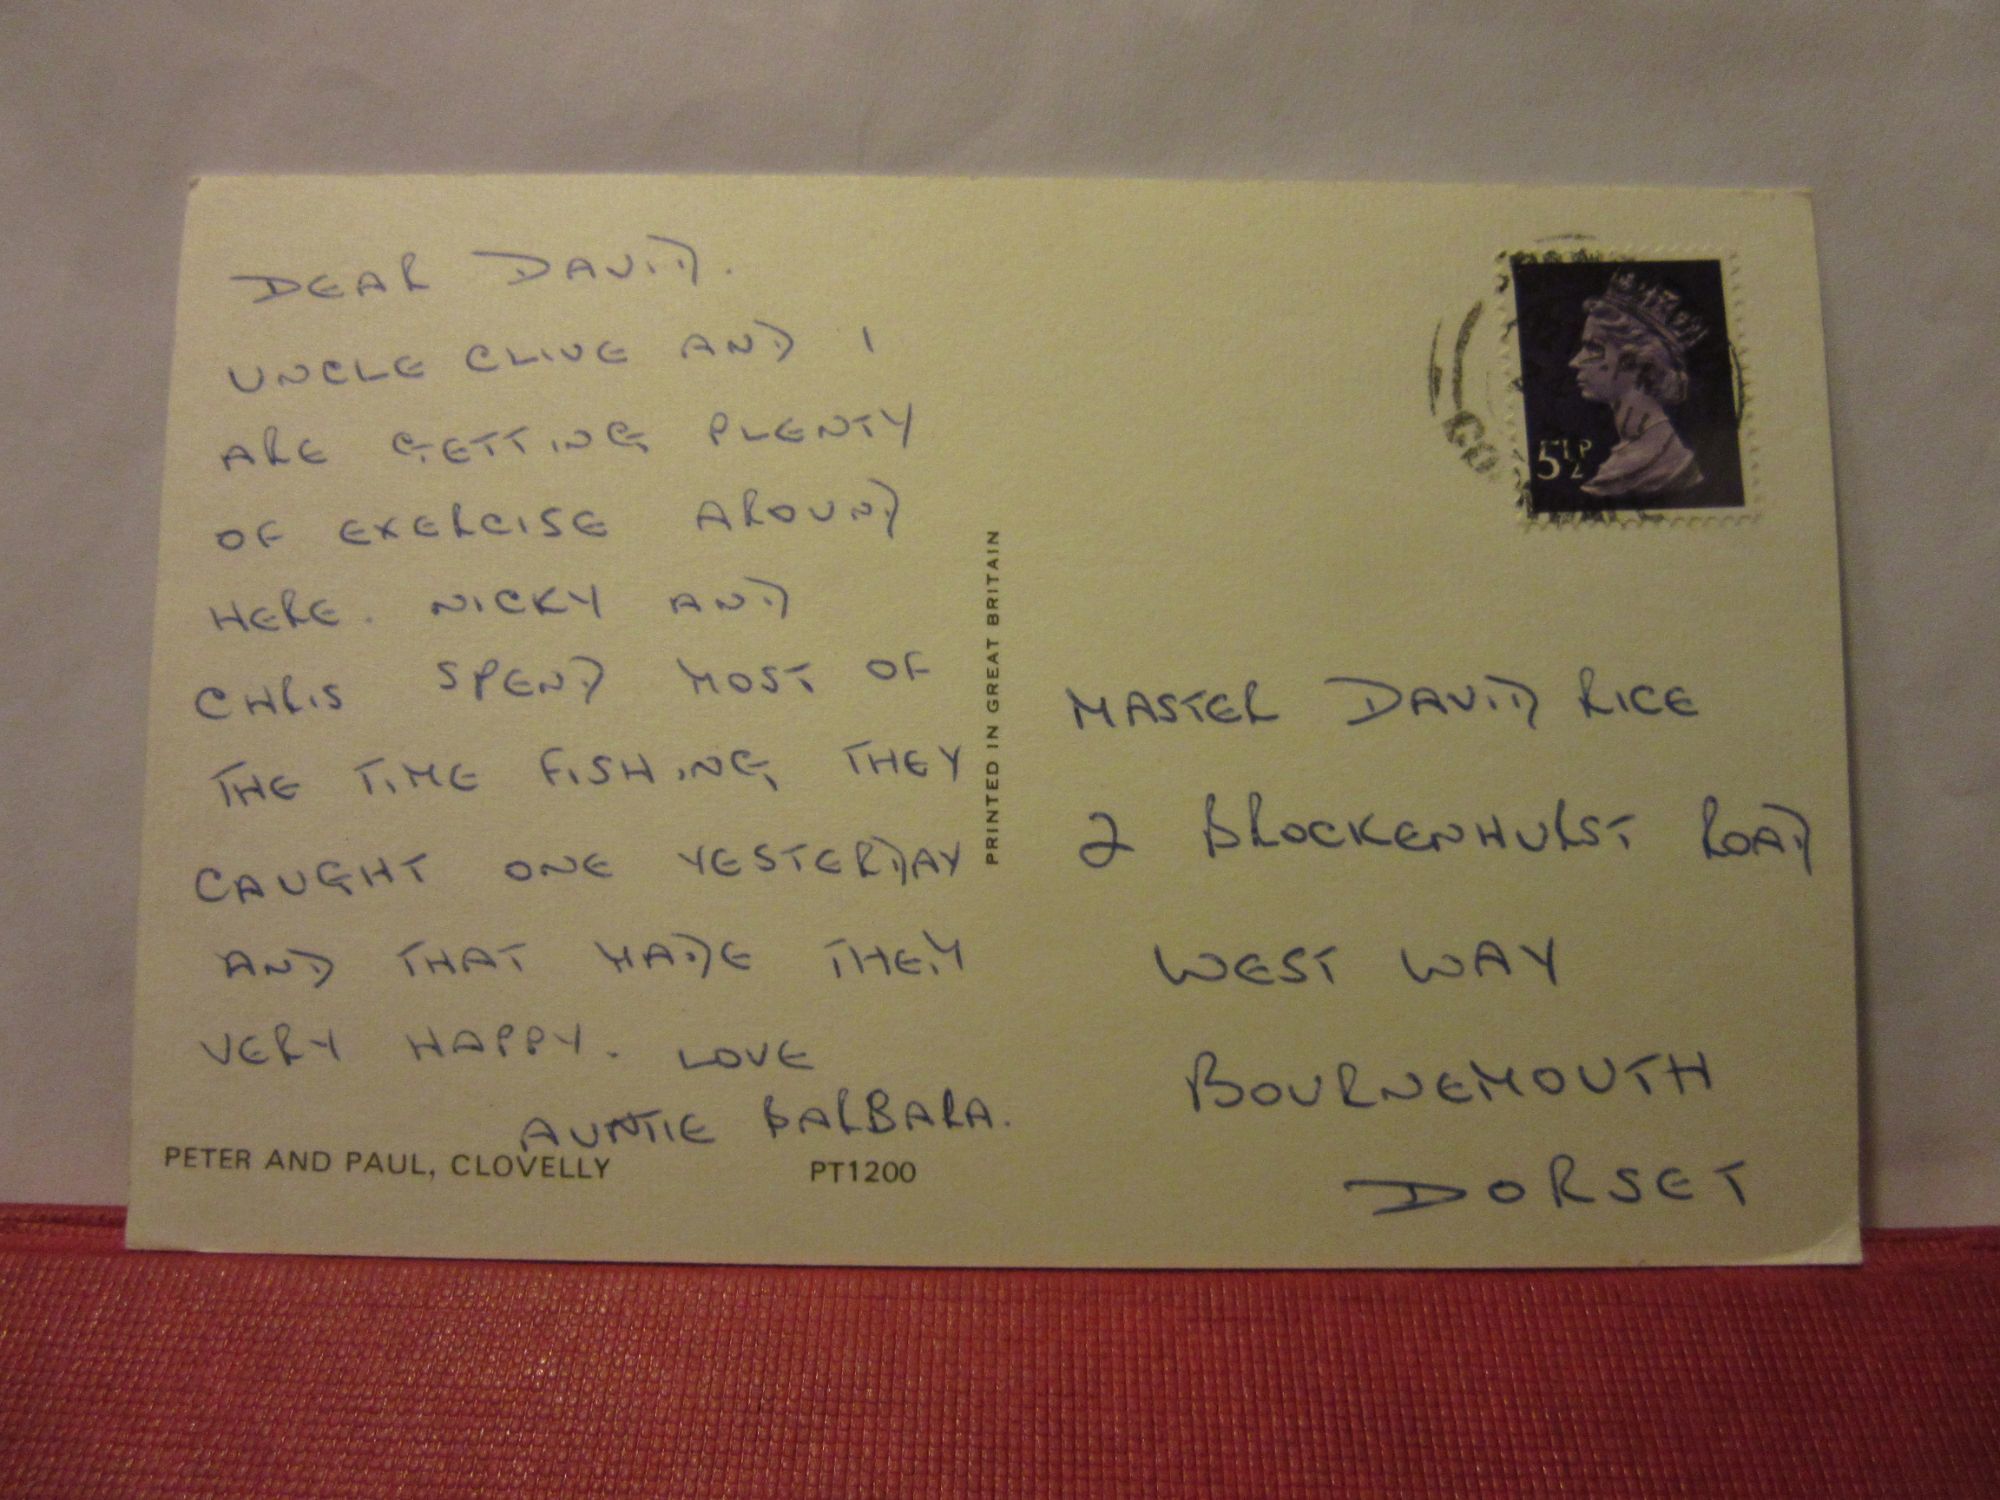 DEAR DAVID.
UNCLE CLIVE AND I
ARE GETTING PLENTY
OF EXERCISE AROUND
HERE. NICKY AND
CHRIS SPEND MOST OF
THE TIME FISHING, THEY
CAUGHT ONE YESTERDAY
AND THAT MADE THEM
VERY HAPPY. LOVE
AUNTIE BARBARA.
PETER AND PAUL, CLOVELLY PT1200
PRINTED IN GREAT BRITAIN
5½P
MASTER DAVID RICE
2 BROCKENHURST ROAD
WEST WAY
BOURNEMOUTH
DORSET